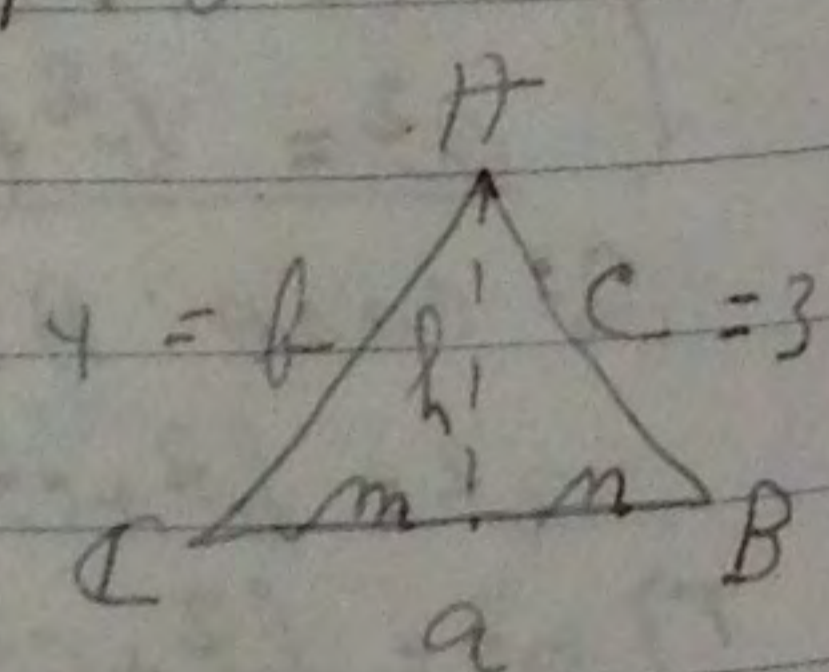 A
4 = b h c = 3
m n
C B
a